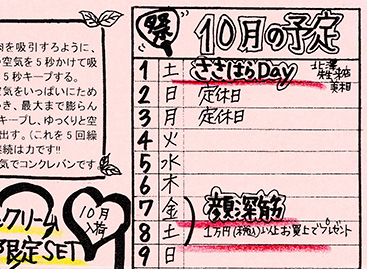 肉を吸引するように、
空気を5秒かけて吸
5秒キープする。
空気をいっぱいにため
き、最大まで膨らん
キープし、ゆっくりと空
出す。(これを5回繰
継続は力です!!
気でコンクレバンです
クリーム
限定SET
10月
入荷
祭 10月の予定
1 土 ささはらDay
2 日 定休日
3 月 定休日
4 火
5 水
6 木
7 金 顔深筋
8 土 1万円(税込)以上お買上でプレゼント
9 日